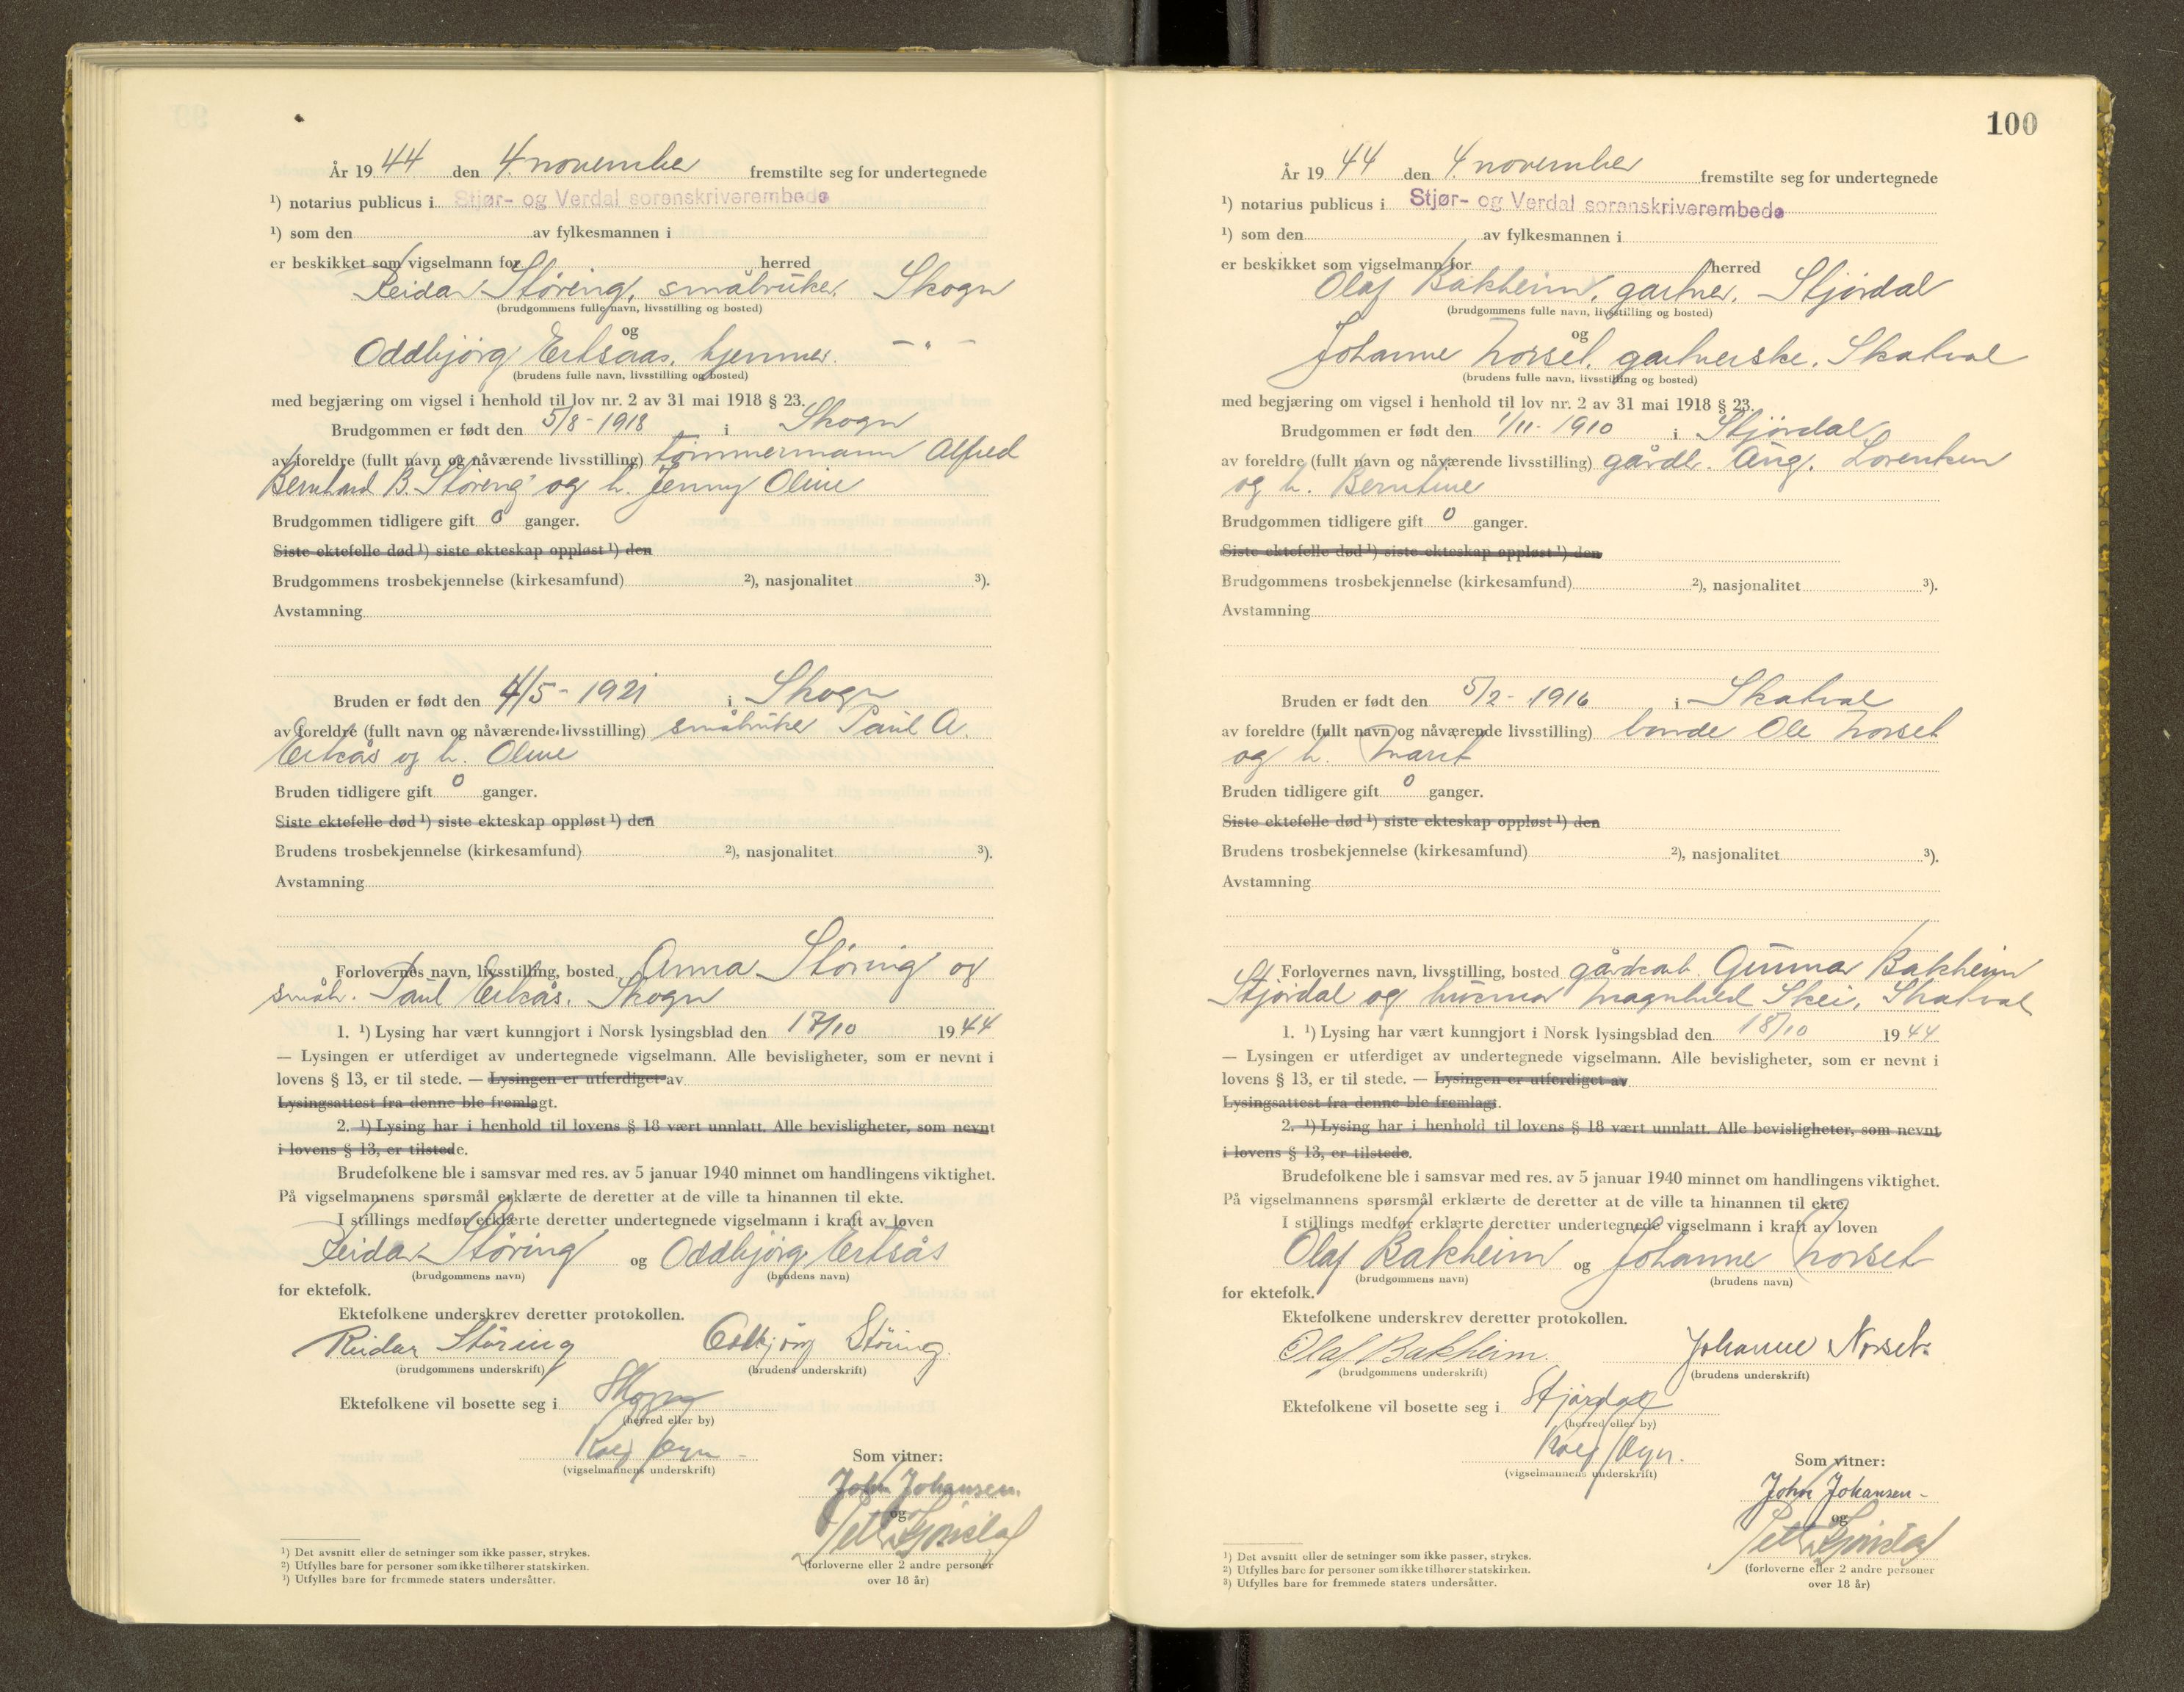 År 19 44 den 4. november fremstilte seg for undertegnede
¹) notarius publicus i Stjør- og Verdal sorenskriverembede
¹) som den av fylkesmannen i
er beskikket som vigselmann for herred
Reidar Störing, småbruker, Skogn
(brudgommens fulle navn, livsstilling og bosted)
og
Oddbjörg Ertsaas, hjemmev. - " -
(brudens fulle navn, livsstilling og bosted)
med begjæring om vigsel i henhold til lov nr. 2 av 31 mai 1918 § 23.
Brudgommen er født den 5/8 - 1918 i Skogn
av foreldre (fullt navn og nåværende livsstilling) tömmermann Alfred
Bernhard B. Störing og h. Jenny Oline
Brudgommen tidligere gift 0 ganger.
Siste ektefelle død ¹) siste ekteskap oppløst ¹) den
Brudgommens trosbekjennelse (kirkesamfund) ²), nasjonalitet ³).
Avstamning
Bruden er født den 4/5 - 1921 i Skogn
av foreldre (fullt navn og nåværende livsstilling) småbruker Paul A.
Ertsås og h. Oline
Bruden tidligere gift 0 ganger.
Siste ektefelle død ¹) siste ekteskap oppløst ¹) den
Brudens trosbekjennelse (kirkesamfund) ²), nasjonalitet ³).
Avstamning
Forlovernes navn, livsstilling, bosted Anna Störing og
småb. Paul Ertsås, Skogn
1. ¹) Lysing har vært kunngjort i Norsk lysingsblad den 17/10 19 44
— Lysingen er utferdiget av undertegnede vigselmann. Alle bevisligheter, som er nevnt i
lovens § 13, er til stede. — Lysingen er utferdiget av
Lysingsattest fra denne ble fremlagt.
2. ¹) Lysing har i henhold til lovens § 18 vært unnlatt. Alle bevisligheter, som nevnt
i lovens § 13, er tilstede.
Brudefolkene ble i samsvar med res. av 5 januar 1940 minnet om handlingens viktighet.
På vigselmannens spørsmål erklærte de deretter at de ville ta hinannen til ekte.
I stillings medfør erklærte deretter undertegnede vigselmann i kraft av loven
Reidar Störing og Oddbjörg Ertsås
(brudgommens navn) (brudens navn)
for ektefolk.
Ektefolkene underskrev deretter protokollen.
Reidar Störing Oddbjörg Störing.
(brudgommens underskrift) (brudens underskrift)
Ektefolkene vil bosette seg i Skogn
(herred eller by)
(vigselmannens underskrift)
Som vitner:
John Johansen.
og
(forloverne eller 2 andre personer
over 18 år)
¹) Det avsnitt eller de setninger som ikke passer, strykes.
²) Utfylles bare for personer som ikke tilhører statskirken.
³) Utfylles bare for fremmede staters undersåtter.
100
År 19 44 den 4. november fremstilte seg for undertegnede
¹) notarius publicus i Stjør- og Verdal sorenskriverembede
¹) som den av fylkesmannen i
er beskikket som vigselmann for herred
Olaf Bakheim, gartner, Stjördal
(brudgommens fulle navn, livsstilling og bosted)
og
Johanne Norset, gartnerske, Skatval
(brudens fulle navn, livsstilling og bosted)
med begjæring om vigsel i henhold til lov nr. 2 av 31 mai 1918 § 23.
Brudgommen er født den 1/11 - 1910 i Stjördal
av foreldre (fullt navn og nåværende livsstilling) gårdbr. Aug. Lorentsen
og h. Berntine
Brudgommen tidligere gift 0 ganger.
Siste ektefelle død ¹) siste ekteskap oppløst ¹) den
Brudgommens trosbekjennelse (kirkesamfund) ²), nasjonalitet ³).
Avstamning
Bruden er født den 5/2 - 1916 i Skatval
av foreldre (fullt navn og nåværende livsstilling) bonde Ole Norset
og h. Marit
Bruden tidligere gift 0 ganger.
Siste ektefelle død ¹) siste ekteskap oppløst ¹) den
Brudens trosbekjennelse (kirkesamfund) ²), nasjonalitet ³).
Avstamning
Forlovernes navn, livsstilling, bosted gårdsarb. Gunnar Bakheim
Stjördal og husmor Magnhild Skei, Skatval
1. ¹) Lysing har vært kunngjort i Norsk lysingsblad den 18/10 19 44
— Lysingen er utferdiget av undertegnede vigselmann. Alle bevisligheter, som er nevnt i
lovens § 13, er til stede. — Lysingen er utferdiget av
Lysingsattest fra denne ble fremlagt.
2. ¹) Lysing har i henhold til lovens § 18 vært unnlatt. Alle bevisligheter, som nevnt
i lovens § 13, er tilstede.
Brudefolkene ble i samsvar med res. av 5 januar 1940 minnet om handlingens viktighet.
På vigselmannens spørsmål erklærte de deretter at de ville ta hinannen til ekte.
I stillings medfør erklærte deretter undertegnede vigselmann i kraft av loven
Olaf Bakheim og Johanne Norset
(brudgommens navn) (brudens navn)
for ektefolk.
Ektefolkene underskrev deretter protokollen.
Olaf Bakheim. Johanne Norset.
(brudgommens underskrift) (brudens underskrift)
Ektefolkene vil bosette seg i Stjørdal
(herred eller by)
(vigselmannens underskrift)
Som vitner:
John Johansen
og
(forloverne eller 2 andre personer
over 18 år)
¹) Det avsnitt eller de setninger som ikke passer, strykes.
²) Utfylles bare for personer som ikke tilhører statskirken.
³) Utfylles bare for fremmede staters undersåtter.